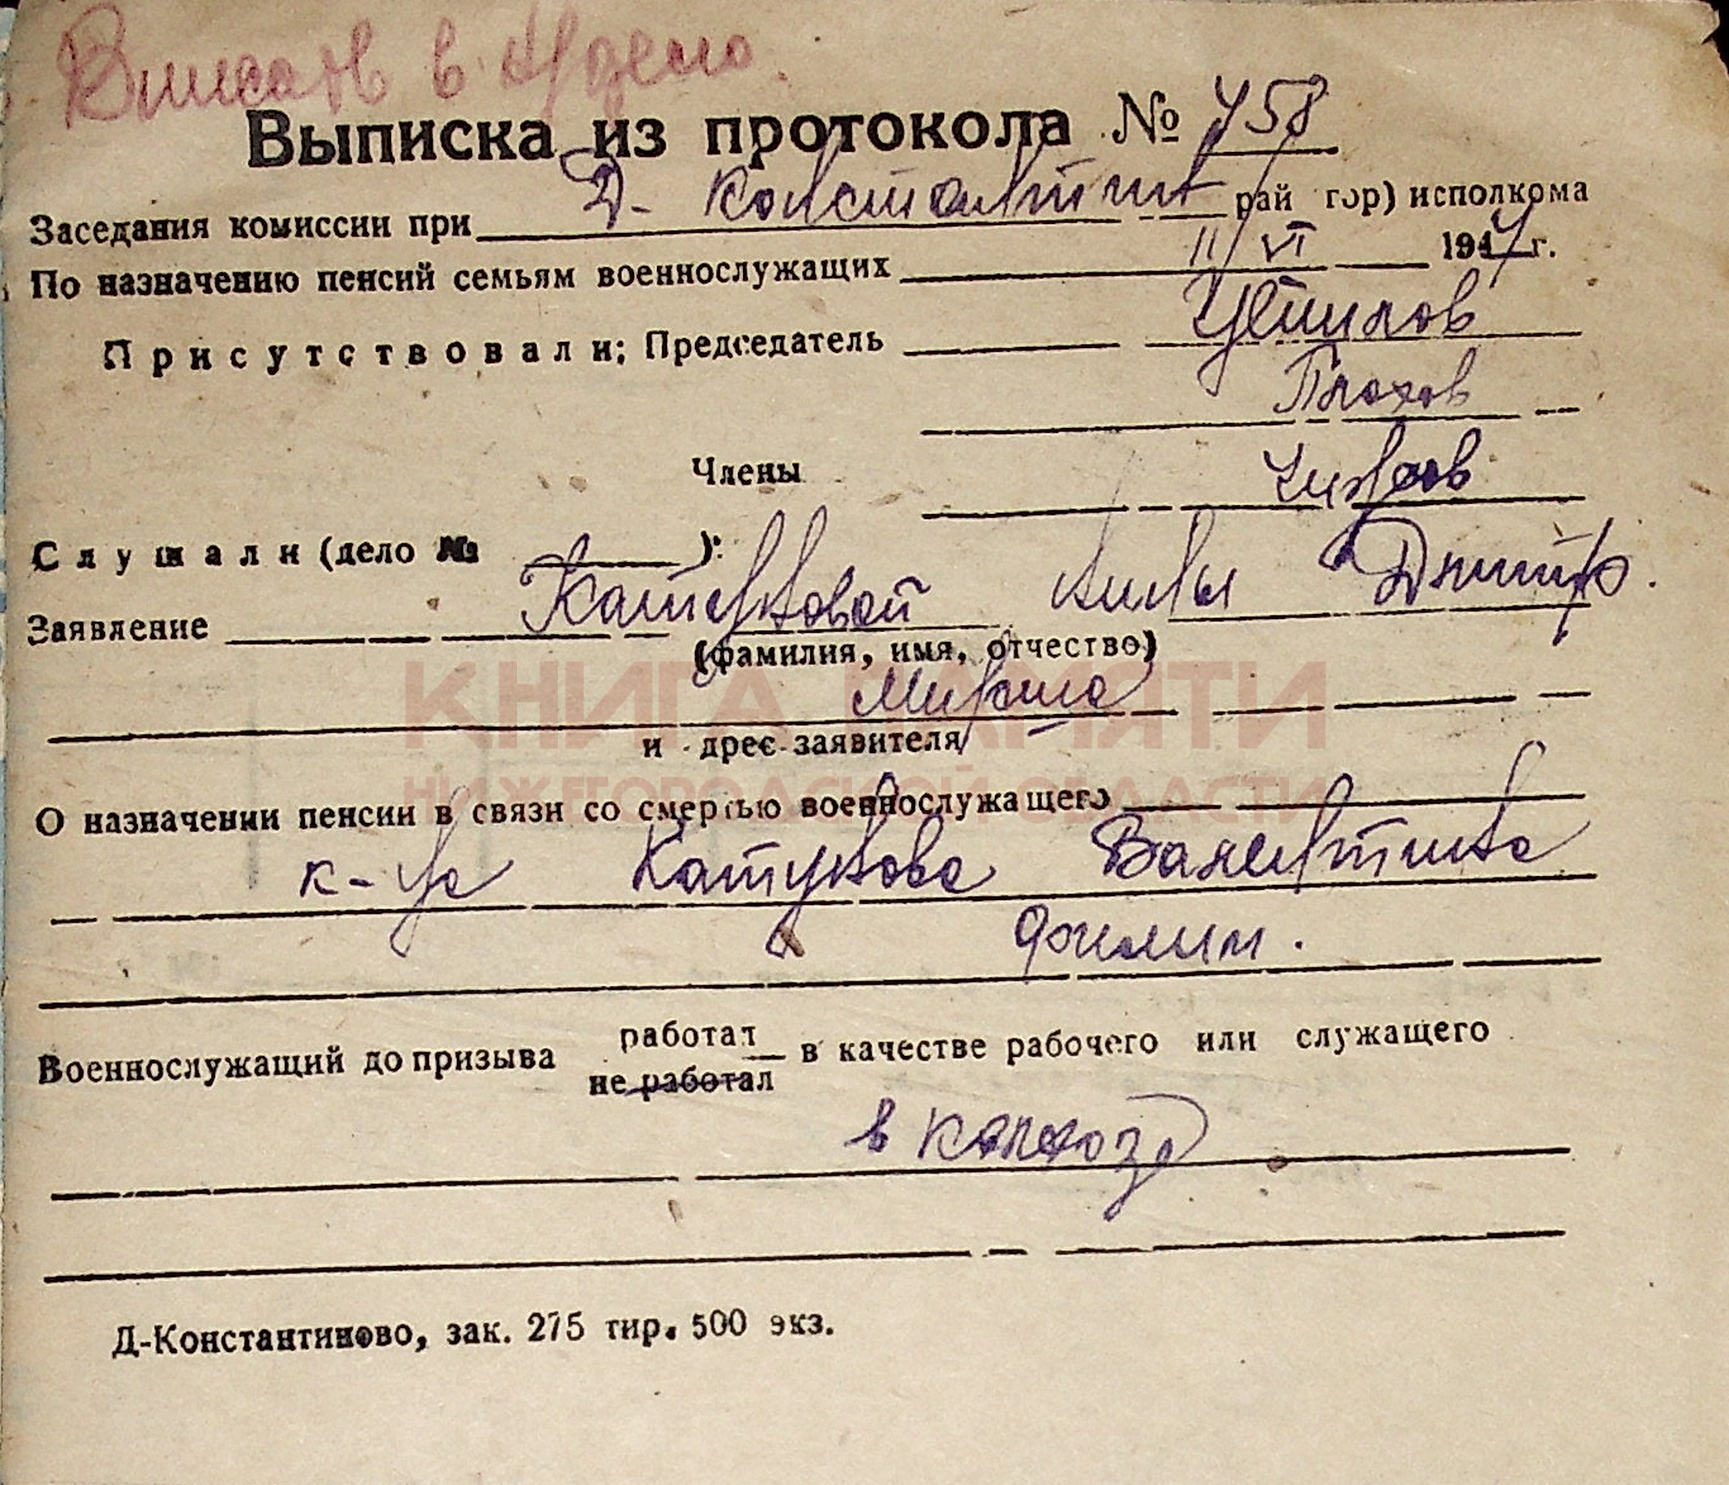 Выписка из протокола № 458
Заседания комиссии при Д-Константин рай гор) исполкома
По назначению пенсий семьям военнослужащих 11/VI 1944 г.
Присутствовали; Председатель
Плохов
Члены
Слушали (дело № ):
Заявление Катунковой Дмитр.
(фамилия, имя, отчество)
и дрес заявителя
КНИГА ПАМЯТИ
НИЖЕГОРОДСКОЙ ОБЛАСТИ
О назначении пенсии в связи со смертью военнослужащего
к-ца Катункова Валентина
Филип.
работал
Военнослужащий до призыва в качестве рабочего или служащего
не работал
в колхозе
Д-Константиново, зак. 275 тир. 500 экз.